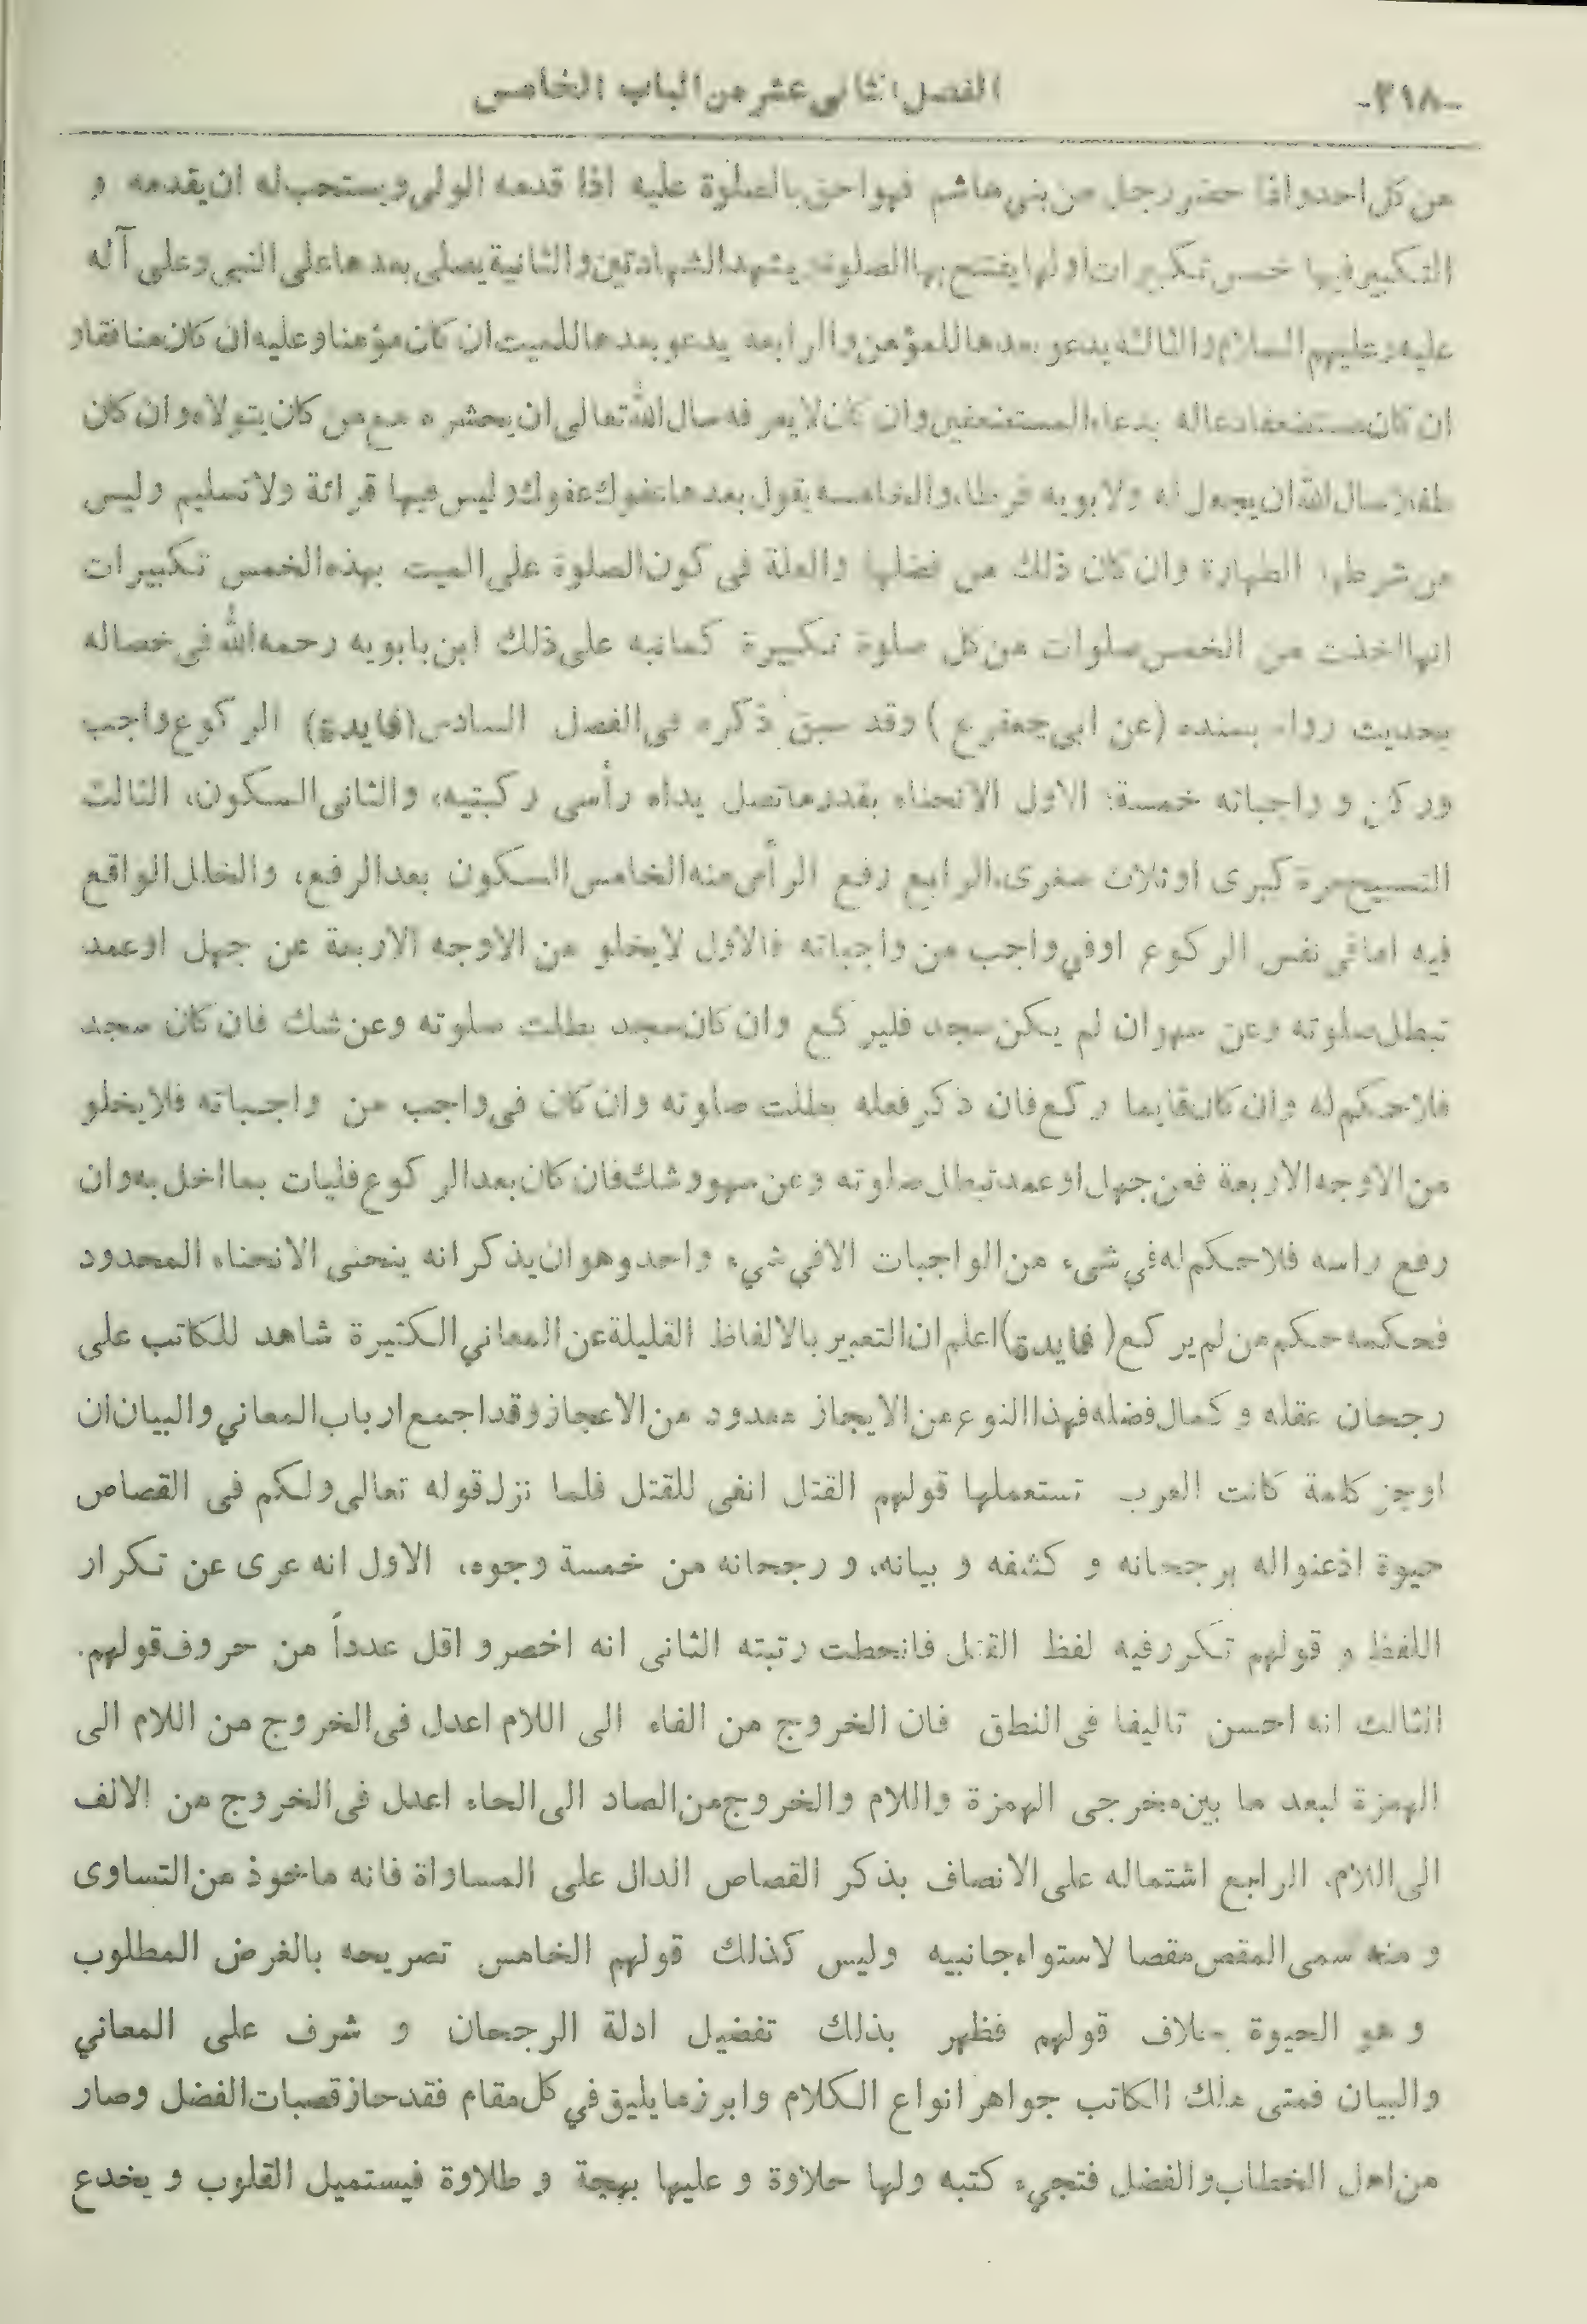 -٢١٨-
الفصل الثانى عشر من الباب الخامس
من كل احد واذا حضر رجل من بنى هاشم فهو احق بالصلوة عليه اذا قدمه الولى ويستحب له ان يقدمه و
التكبير فيها خمس تكبيرات اولها يفتتح بها الصلوة ويشهد الشهادتين والثانية يصلى بعدها على النبى وعلى آله
عليه وعليهم السلام والثالثة يدعو بعدها للمؤمن والرابعه يدعو بعدها للميت ان كان مؤمنا وعليه ان كان منافقا و
ان كان مستضعفا دعا له بدعاء المستضعفين وان كان لا يعرفه سال الله تعالى ان يحشره مع من كان يتولاه وان كان
طفلا سال الله ان يجعل له ولابويه فرطا، والخامسه يقول بعدها عفوك عفوك وليس فيها قرائة ولا تسليم وليس
من شرطها الطهارة وان كان ذلك من فضلها والعلة فى كون الصلوة على الميت بهذه الخمس تكبيرات
انها اخذت من الخمس صلوات من كل صلوة تكبيرة كما نبه على ذلك ابن بابويه رحمه الله فى خصاله
بحديث رواه بسنده (عن ابى جعفر ع) وقد سبق ذكره فى الفصل السادس (فايدة) الركوع واجب
وركن و واجباته خمسة: الاول الانحناء بقدر ما تصل يداه رأسى ركبتيه، والثانى السكون، الثالث
التسبيح مرة كبرى او ثلاث صغرى، الرابع رفع الرأس منه الخامس السكون بعد الرفع، والخلل الواقع
فيه اما فى نفس الركوع اوفي واجب من واجباته فالاول لايخلو من الاوجه الاربعة عن جهل او عمد
تبطل صلوته وعن سهو ان لم يكن سجد فليركع وان كان سجد بطلت صلوته وعن شك فان كان سجد
فلاحكم له وان كان قايما ركع فان ذكر فعله بطلت صلوته وان كان فى واجب من واجباته فلايخلو
من الاوجه الاربعة فعن جهل او عمد تبطل صلوته وعن سهو وشك فان كان بعد الركوع فليات بما اخل به وان
رفع راسه فلاحكم له في شىء من الواجبات الا في شيء واحد وهو ان يذكر انه ينحنى الانحناء المحدود
فحكمه حكم من لم يركع (فايدة) اعلم ان التعبير بالالفاظ القليلة عن المعاني الكثيرة شاهد للكاتب على
رجحان عقله و كمال فضله فهذا النوع من الايجاز معدود من الاعجاز وقد اجمع ارباب المعاني والبيان ان
اوجز كلمة كانت العرب تستعملها قولهم القتل انفى للقتل فلما نزل قوله تعالى ولكم فى القصاص
حيوة اذعنوا له برجحانه و كشفه و بيانه، و رجحانه من خمسة وجوه، الاول انه عرى عن تكرار
اللفظ و قولهم تكرر فيه لفظ القتل فانحطت رتبته الثانى انه اخصر و اقل عدداً من حروف قولهم.
الثالث انه احسن تاليفا فى النطق فان الخروج من الفاء الى اللام اعدل فى الخروج من اللام الى
الهمزة لبعد ما بين مخرجى الهمزة واللام والخروج من الصاد الى الحاء اعدل فى الخروج من الالف
الى اللام. الرابع اشتماله على الانصاف بذكر القصاص الدال على المساواة فانه ماخوذ من التساوى
و منه سمى المقص مقصا لاستواء جانبيه وليس كذلك قولهم الخامس تصريحه بالغرض المطلوب
و هو الحيوة بخلاف قولهم فظهر بذلك تفضيل ادلة الرجحان و شرف على المعاني
والبيان فمتى ملك الكاتب جواهر انواع الكلام وابرز ما يليق في كل مقام فقد حاز قصبات الفضل وصار
من اهل الخطاب والفضل فتجيء كتبه ولها حلاوة و عليها بهجة و طلاوة فيستميل القلوب و يخدع